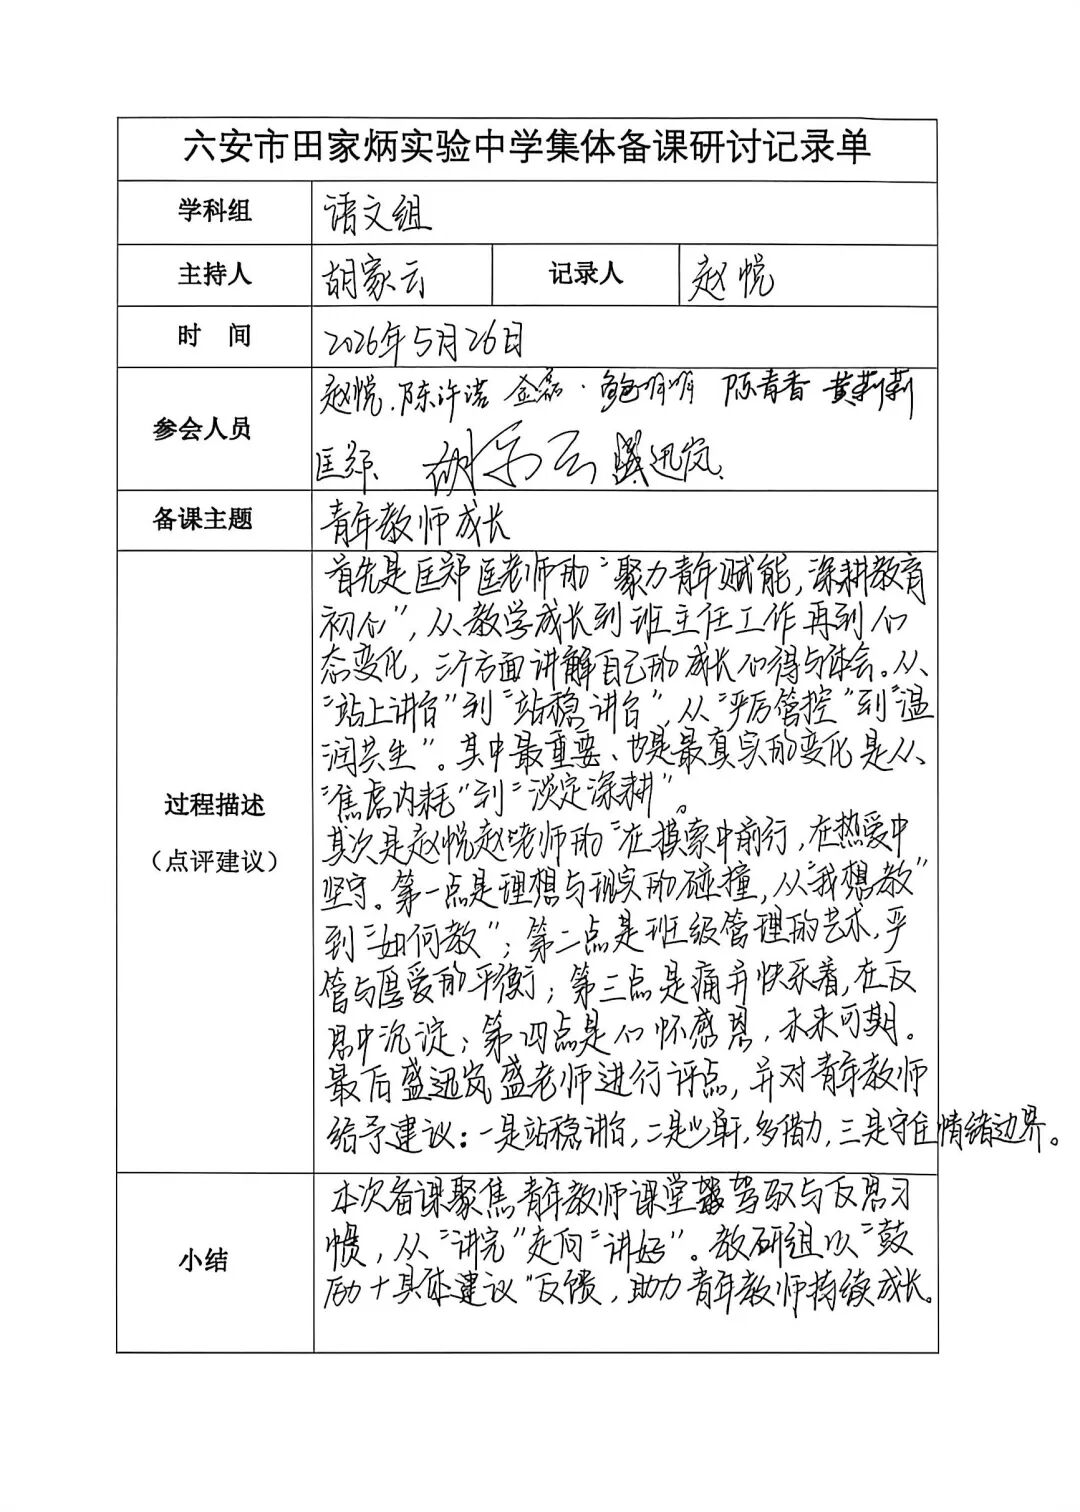 六安市田家炳实验中学集体备课研讨记录单
学科组 语文组
主持人 胡家云 记录人 赵悦
时 间 2026年5月26日
参会人员
赵悦、陈许诺 金磊·鲍明明 陈青香 黄莉莉
匡郑、胡家云 盛迅岚
备课主题 青年教师成长
过程描述
（点评建议）
首先是匡郑匡老师的“聚力青年赋能,深耕教育
初心”，从教学成长到班主任工作再到心
态变化，三个方面讲解自己的成长心得与体会。从
“站上讲台”到“站稳讲台”，从“严厉管控”到“温
润共生”。其中最重要、也是最真实的变化是从
“焦虑内耗”到“淡定深耕”。
其次是赵悦赵老师的“在摸索中前行，在热爱中
坚守。第一点是理想与现实的碰撞，从“我想教”
到“如何教”；第二点是班级管理的艺术，严
管与厚爱的平衡；第三点是痛并快乐着，在反
思中沉淀；第四点是心怀感恩，未来可期。
最后盛迅岚盛老师进行评点，并对青年教师
给予建议：一是站稳讲台，二是少单干，多借力，三是守住情绪边界。
小结
本次备课聚焦青年教师课堂驾驭与反思习
惯，从“讲完”走向“讲好”。教研组以“鼓
励+具体建议”反馈，助力青年教师持续成长。